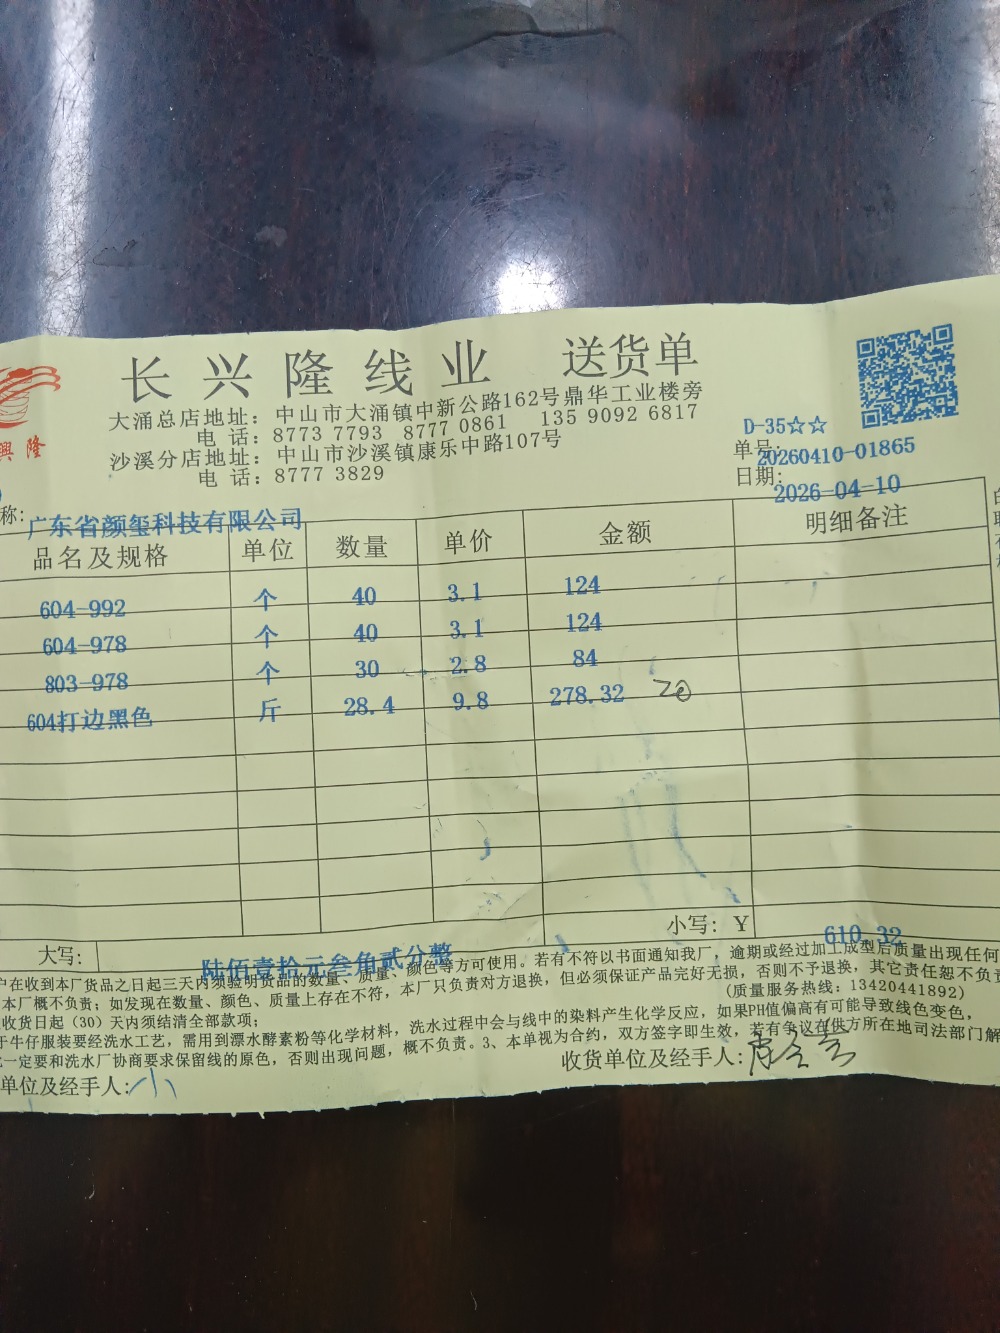 长兴隆线业 送货单
興隆
大涌总店地址：中山市大涌镇中新公路162号鼎华工业楼旁
电 话：8773 7793 8777 0861 135 9092 6817
沙溪分店地址：中山市沙溪镇康乐中路107号
电 话：8777 3829
D-35☆☆
单号：20260410-01865
日期：2026-04-10
称：广东省颜玺科技有限公司
品名及规格 单位 数量 单价 金额 明细备注
604-992 个 40 3.1 124
604-978 个 40 3.1 124
803-978 个 30 2.8 84
604打边黑色 斤 28.4 9.8 278.32 20
大写： 陆佰壹拾元叁角贰分整 小写：￥ 610.32
户在收到本厂货品之日起三天内须验明货品的数量、质量、颜色等方可使用。若有不符以书面通知我厂，逾期或经过加工成型后质量出现任何
本厂概不负责；如发现在数量、颜色、质量上存在不符，本厂只负责对方退换，但必须保证产品完好无损，否则不予退换，其它责任恕不负责
收货日起（30）天内须结清全部款项； （质量服务热线：13420441892）
于牛仔服装要经洗水工艺，需用到漂水酵素粉等化学材料，洗水过程中会与线中的染料产生化学反应，如果PH值偏高有可能导致线色变色，
一定要和洗水厂协商要求保留线的原色，否则出现问题，概不负责。3、本单视为合约，双方签字即生效，若有争议在供方所在地司法部门解
单位及经手人：小 收货单位及经手人：